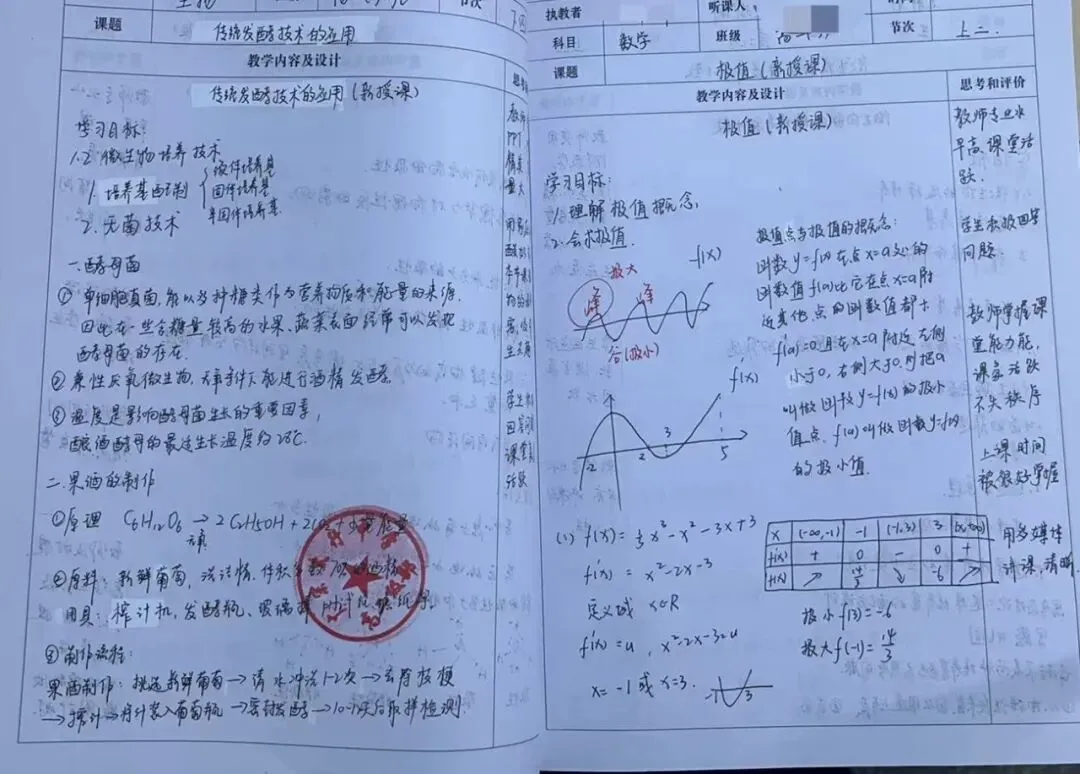 课题 传统发酵技术的应用
教学内容及设计
传统发酵技术的应用(新授课)
学习目标:
1.2 微生物培养技术
1. 培养基配制 液体培养基
固体培养基
半固体培养基
2. 无菌技术
一.酵母菌
① 单细胞真菌,能以多种糖类作为营养物质和能量的来源.
因此在一些含糖量较高的水果、蔬菜表面经常可以发现
酵母菌的存在.
② 兼性厌氧微生物,无氧条件下能进行酒精发酵。
③ 温度是影响酵母菌生长的重要因素,
酿酒酵母的最适生长温度约28℃.
二.果酒的制作
①原理 C6H12O6 → 2C2H5OH + 2CO2 +
②原料: 新鲜葡萄,
用具: 榨汁机,发酵瓶,
制作流程:
果酒制作: 挑选新鲜葡萄→清水冲洗1-2次→去除枝梗
→榨汁→将汁装入葡萄瓶→密封发酵→10-12天后取样检测.
执教者
听课人:
科目 数学 班级 节次 上二.
课题 极值(新授课)
教学内容及设计 思考和评价
极值(新授课)
学习目标:
1. 理解极值概念,
2. 会求极值.
极大
f(x)
峰 峰
谷(极小)
f(x)
-2 2 3 5
极值点与极值的概念:
函数y=f(x)在点x=a处的
函数值f(a)比它在点x=a附
近其他点的函数值都小
f'(a)=0.且在x=a附近左侧
小于0,右侧大于0.则把a
叫做函数y=f(x)的极小
值点.f(a)叫做函数y=f(x)
的极小值.
(1) f(x)=1/3x³-x²-3x+3
f'(x) = x²-2x-3
定义域 x∈R
f'(x)=0, x²-2x-3=0
x=-1 或 x=3.
-1 3
x (-∞,-1) -1 (-1,3) 3 (3,+∞)
f'(x) + 0 - 0 +
f(x) ↗ 14/3 ↘ -6 ↗
极小f(3)=-6
极大f(-1)=14/3
教师专业水
平高,课堂活
跃.
学生积极回答
问题
教师掌握课
堂能力强,
课堂活跃
不失秩序
上课时间
被很好掌握
用多媒体
讲课,清晰